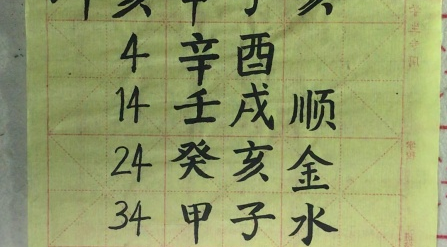 4 辛酉
14 壬戌 顺
24 癸亥 金
34 甲子 水